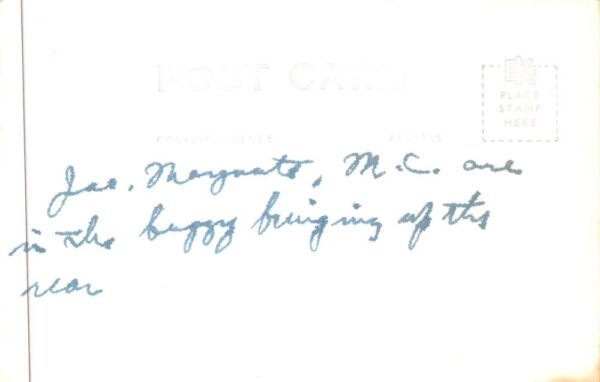 POST CARD
PLACE
STAMP
HERE
CORRESPONDENCE ADDRESS
Jas. M.C. are
in the buggy bringing up the
rear